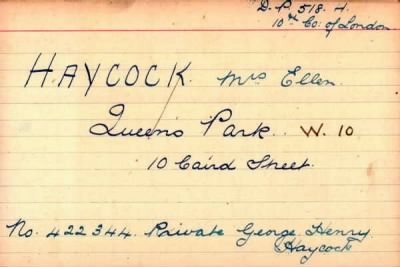 D. P. 518. 4.
10th Co: of London
HAYCOCK. Mrs Ellen.
Queens Park. W. 10
10 Caird Street.
No. 422344. Private George Henry
Haycock